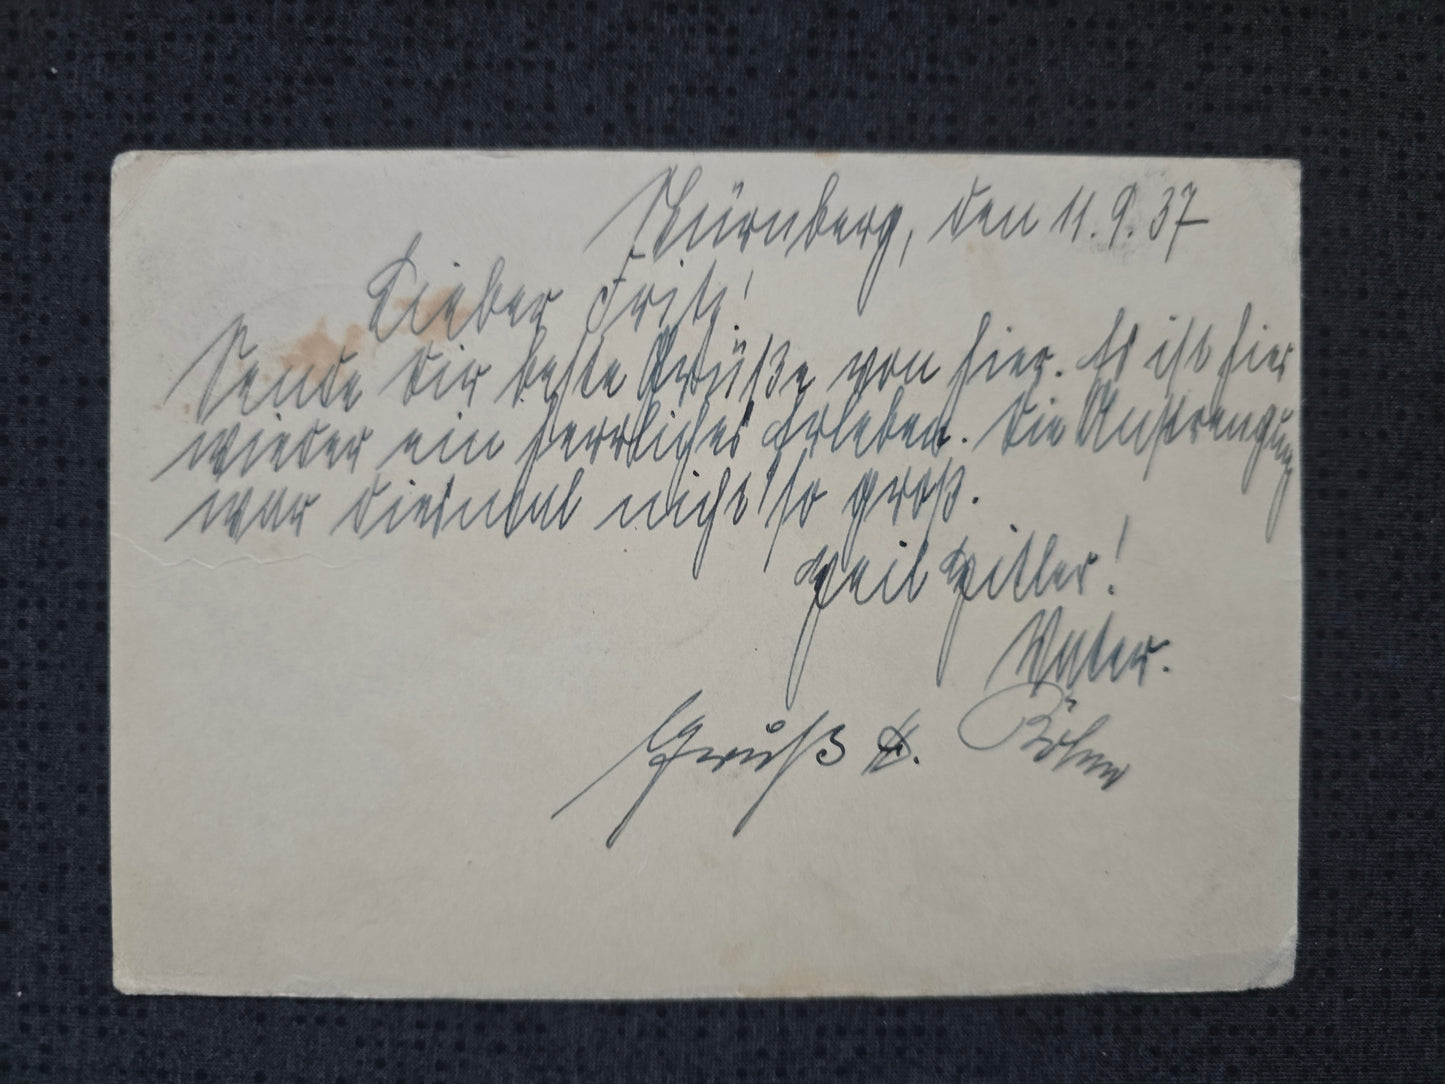 Nürnberg, den 11.9.37
Lieber Fritz!
Sende dir beste Grüße von hier. Es ist hier
wieder ein herrliches Erleben. Die Anstrengung
war diesmal nicht so groß.
Heil Hitler!
Vater.
Gruß H. Böhm